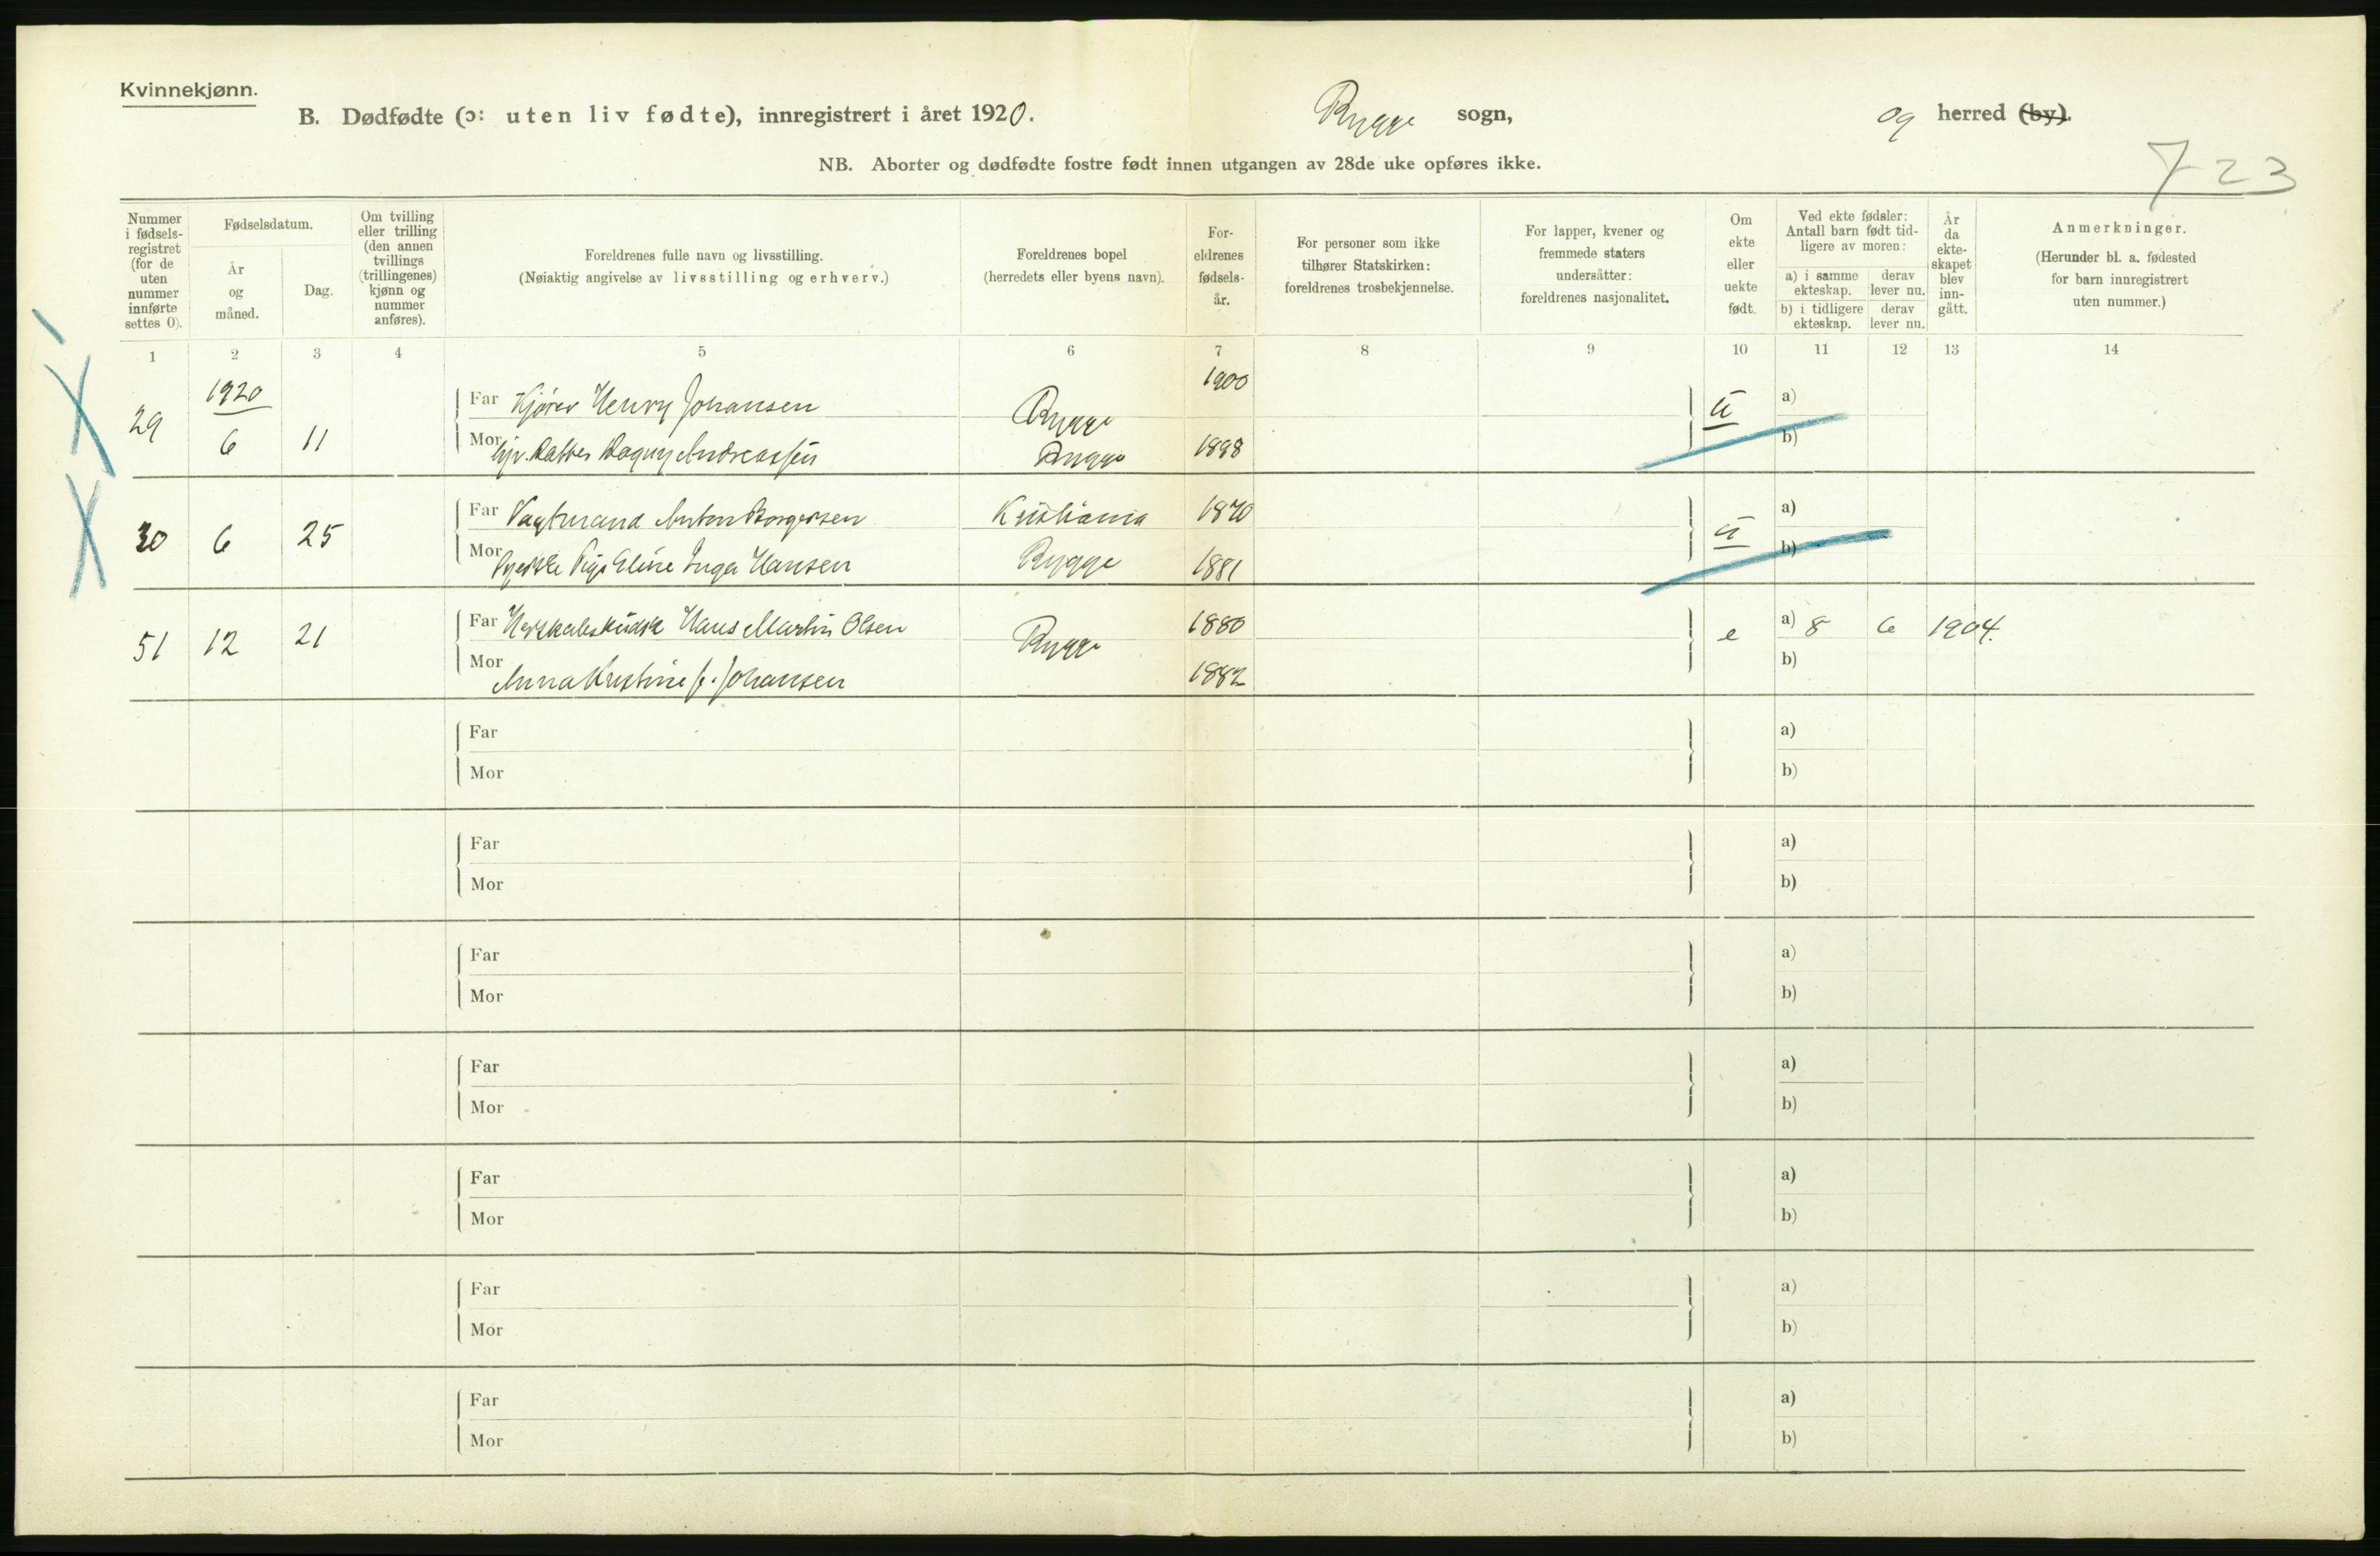 Kvinnekjønn.
B. Dødfødte (ɔ: uten liv fødte), innregistrert i året 1920. Rygge sogn, og herred (by).
723
NB. Aborter og dødfødte fostre født innen utgangen av 28de uke opføres ikke.
Nummer i fødsels-registret (for de uten nummer innførte settes 0).
Fødselsdatum.
År og måned.
Dag.
Om tvilling eller trilling (den annen tvillings (trillingenes) kjønn og nummer anføres).
Foreldrenes fulle navn og livsstilling.
(Nøiaktig angivelse av livsstilling og erhverv.)
Foreldrenes bopel
(herredets eller byens navn).
For-eldrenes fødsels-år.
For personer som ikke tilhører Statskirken: foreldrenes trosbekjennelse.
For lapper, kvener og fremmede staters undersåtter: foreldrenes nasjonalitet.
Om ekte eller uekte født.
Ved ekte fødsler: Antall barn født tid-ligere av moren:
a) i samme ekteskap. derav lever nu.
b) i tidligere ekteskap. derav lever nu.
År da ekte-skapet blev inn-gått.
Anmerkninger.
(Herunder bl. a. fødested for barn innregistrert uten nummer.)
1 2 3 4 5 6 7 8 9 10 11 12 13 14
1920
29 6 11 Far Kjører Henry Johansen Rygge 1900 u a)
Mor Dagny Andreassen Rygge 1898 b)
30 6 25 Far Vagtmand Anton Borgersen Kristiania 1870 u a)
Mor Pige Eline Inga Hansen Rygge 1881 b)
51 12 21 Far Hans Martin Olsen Rygge 1880 e a) 8 6 1904.
Mor Anna Kristine f. Johansen 1882 b)
Far a)
Mor b)
Far a)
Mor b)
Far a)
Mor b)
Far a)
Mor b)
Far a)
Mor b)
Far a)
Mor b)
Far a)
Mor b)